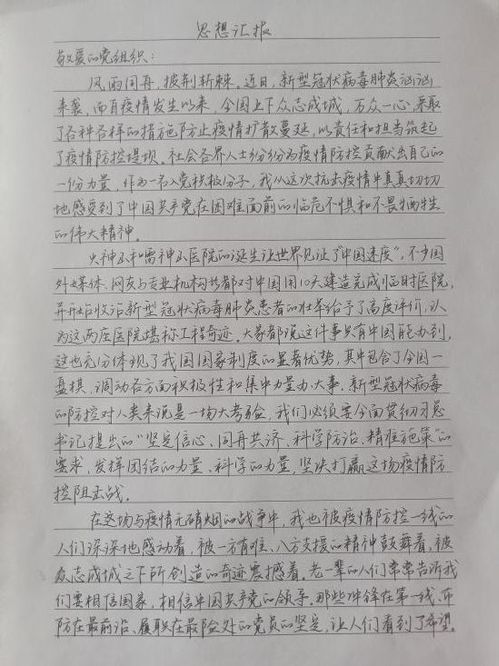 思想汇报
敬爱的党组织：
风雨同舟，披荆斩棘。近日，新型冠状病毒肺炎汹汹
来袭，而自疫情发生以来，全国上下众志成城，万众一心，采取
了各种各样的措施防止疫情扩散蔓延，以责任和担当筑起
了疫情防控堤坝。社会各界人士纷纷为疫情防控贡献出自己的
一份力量。作为一名入党积极分子，我从这次抗击疫情中真真切切
地感受到了中国共产党在困难面前的临危不惧和不畏牺牲
的伟大精神。
火神山和雷神山医院的诞生让世界见证了“中国速度”，不少国
外媒体、网友与专业机构等都对中国用10天建造完成临时医院，
并开始收治新型冠状病毒肺炎患者的壮举给予了高度评价，认
为这两座医院堪称工程奇迹。大家都说这件事只有中国能办到，
这也充分体现了我国国家制度的显著优势，其中包含了全国一
盘棋，调动各方面积极性和集中力量办大事。新型冠状病毒
的防控对人类来说是一场大考验。我们必须要全面贯彻习总
书记提出的“坚定信心、同舟共济、科学防治、精准施策”的
要求，发挥团结的力量、科学的力量，坚决打赢这场疫情防
控阻击战。
在这场与疫情无硝烟的战争中，我也被疫情防控一线的
人们深深地感动着，被一方有难、八方支援的精神鼓舞着，被
众志成城之下所创造的奇迹震撼着。老一辈的人们常常告诉我
们要相信国家，相信中国共产党的领导。那些冲锋在第一线、布
防在最前沿、履职在最险处的党员的坚定，让人们看到了希望。